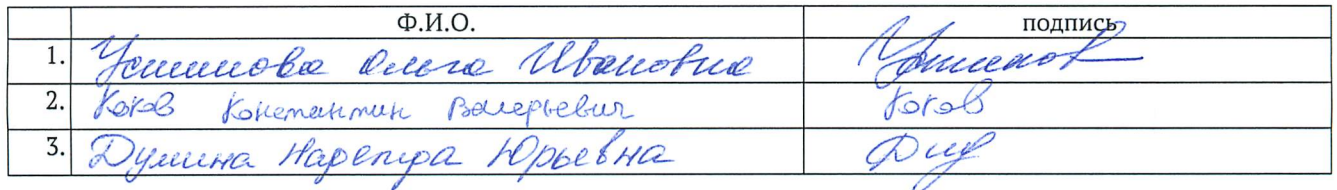 Ф.И.О. подпись
1. Ольга Ивановна
2. Коков Константин Валерьевич Коков
3. Думина Надежда Юрьевна